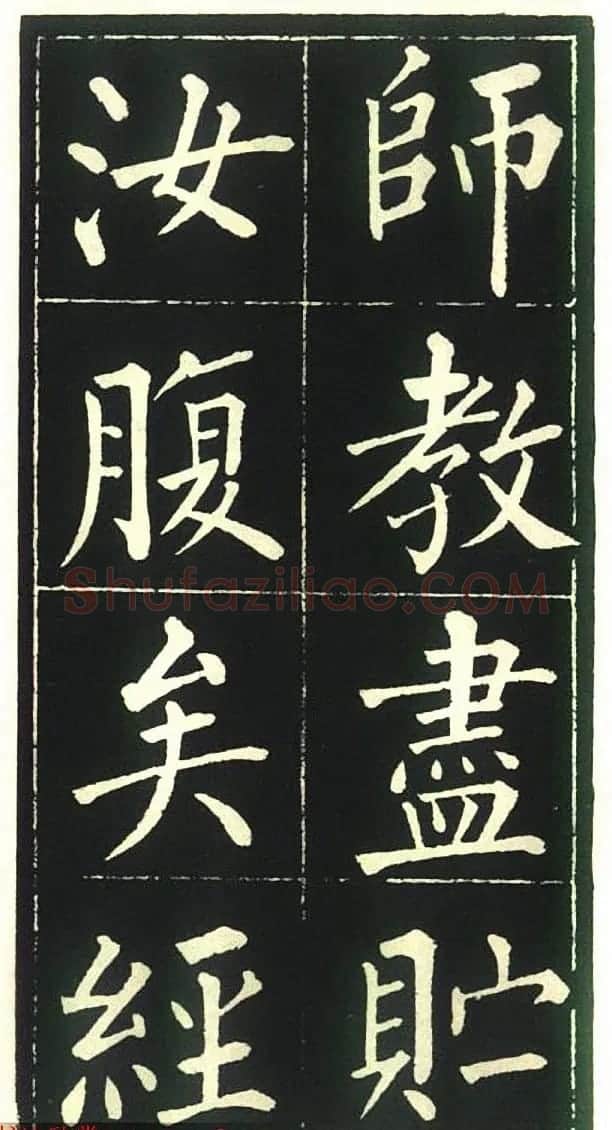 師教盡貯
汝腹矣經
Shufaziliao.COM